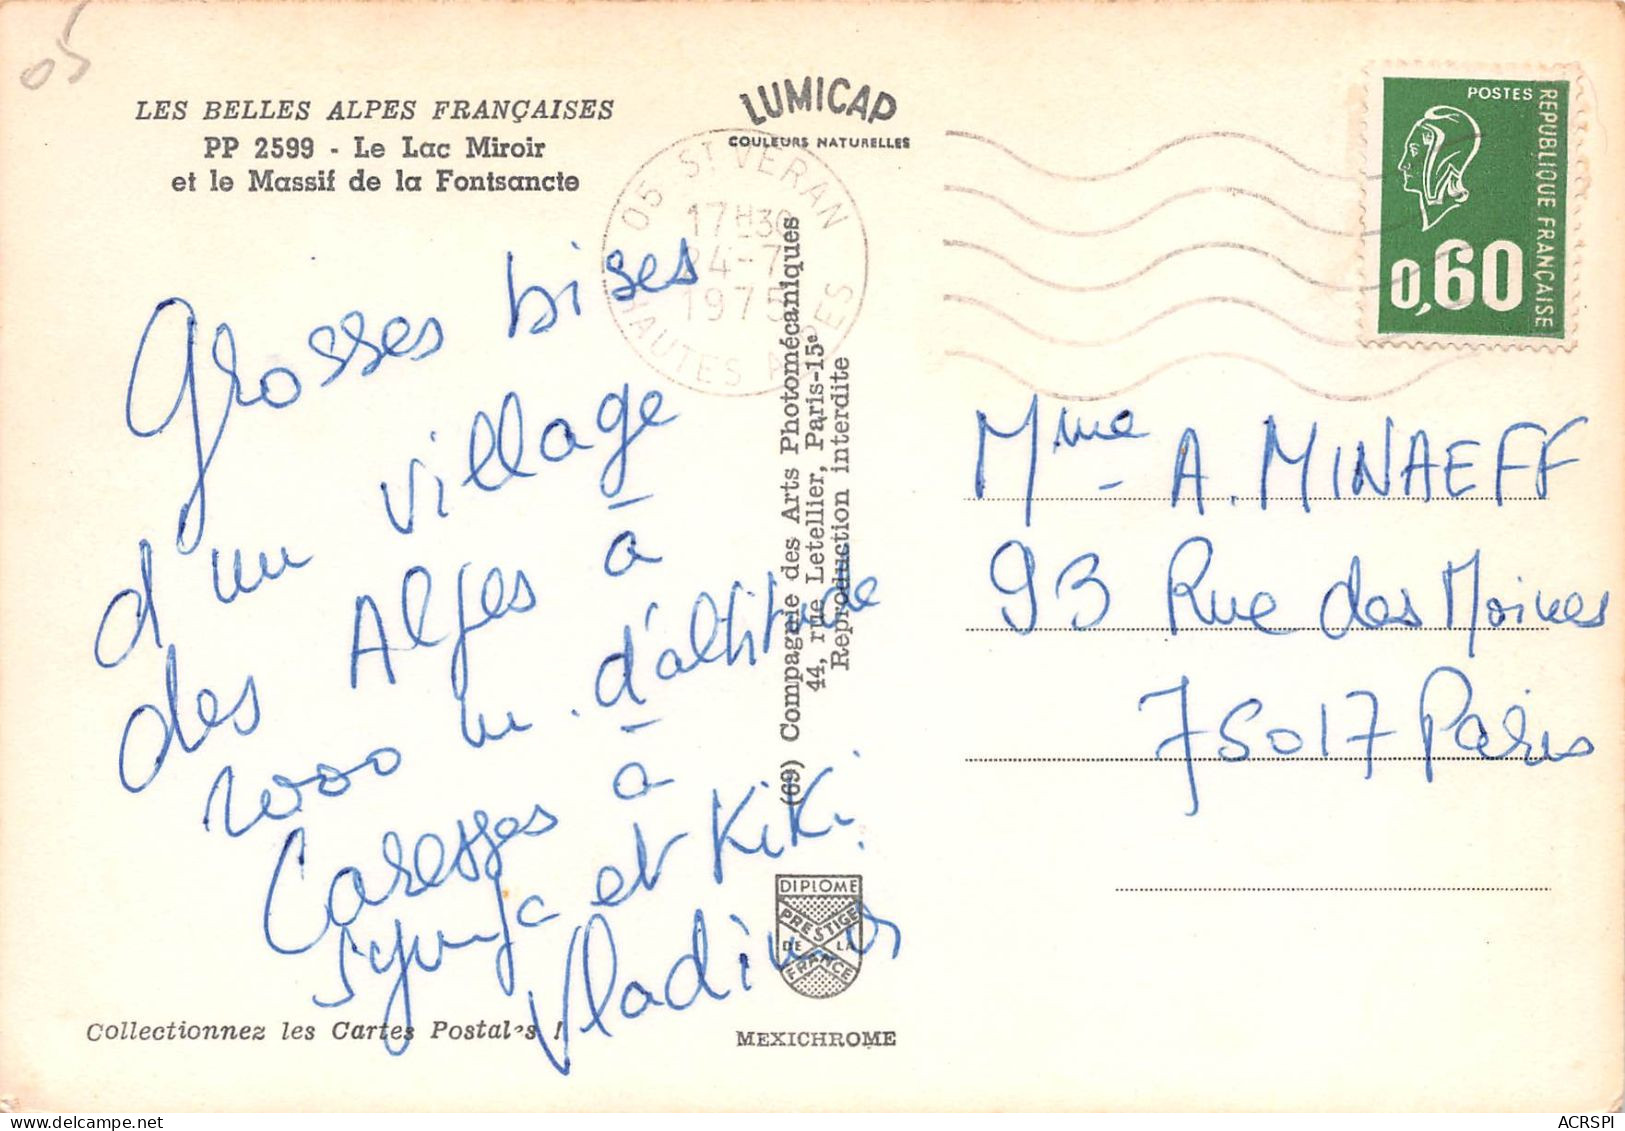 05
LES BELLES ALPES FRANÇAISES
PP 2599 - Le Lac Miroir
et le Massif de la Fontsancte
LUMICAP
COULEURS NATURELLES
05 ST VERAN
17H30
24-7
1975
HAUTES ALPES
POSTES
REPUBLIQUE FRANÇAISE
0,60
Grosses bises
d'un village
des Alpes à
2000 m. d'altitude
Caresses à
et KiKi
Vladimir
(69) Compagnie des Arts Photomécaniques
44, rue Letellier, Paris-15e
Reproduction interdite
Mme A. MINAEFF
93 Rue des Moines
75017 Paris
DIPLOME
PRESTIGE
DE LA
FRANCE
Collectionnez les Cartes Postales !
MEXICHROME
ACRSPI